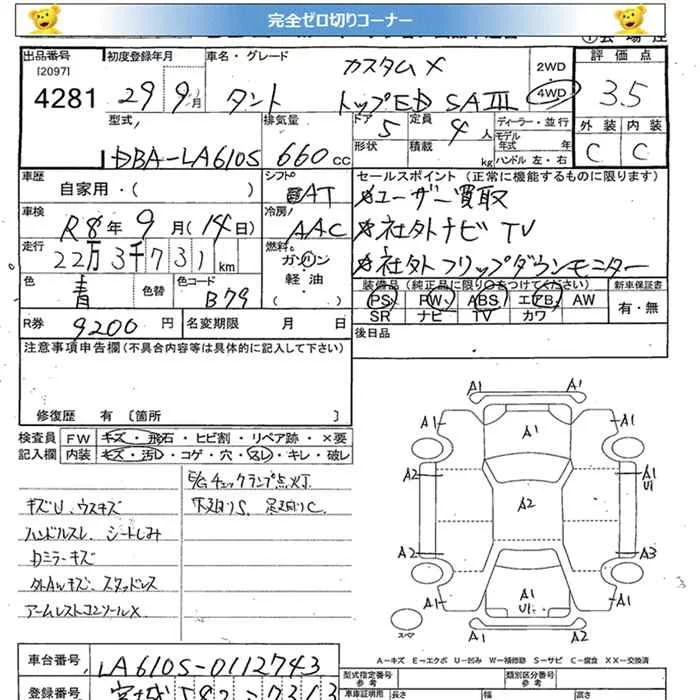 完全ゼロ切りコーナー
出品番号 初度登録年月 車名・グレード 評価点
[2097] カスタムX 2WD
4281 29年9月 タント トップED SAⅢ 4WD 3.5
型式 排気量 ドア 5 定員 4人 ディーラー・並行 外装 内装
DBA-LA610S 660cc 形状 積載 kg モデル年式 年 C C
ハンドル 左・右
車歴 シフト セールスポイント(正常に機能するものに限ります)
自家用・( ) AT ユーザー買取
車検 冷房 社外ナビ TV
R8年9月(14日) AAC
走行 燃料 社外フリップダウンモニター
22万3千731km ガソリン
色 色替 色コード 軽油 装備品(純正品に限り○をつけてください) 新車保証書
青 B79 ( ) PS PW ABS エアB AW 有・無
SR ナビ TV カワ
R券 9200円 名変期限 月 日 後日品
注意事項申告欄(不具合内容等は具体的に記入して下さい)
修復歴 有〔箇所 〕
検査員 FW キズ・飛石・ヒビ割・リペア跡・×要
記入欄 内装 キズ・汚レ・コゲ・穴・スレ・キレ・破レ
E/Gチェックランプ点灯
キズU、ウスキズ 下廻りS、足廻りC
ハンドルスレ、シートしみ
Dミラーキズ
外AWキズ、スタッドレス
アームレストコンソールX
A1 A1
A1 A1 A1
A2 A2 A1
U1
A2 A3
A1 A1 A1
U1
A1 A1
スペア
A－キズ E－エクボ U－凹み W－補修跡 S－サビ C－腐食 X X－交換済
車台番号 LA610S-0112743 型式指定番号 参考 類別区分番号 参考
登録番号 宮城 582 車庫証明用 長さ 幅 高さ